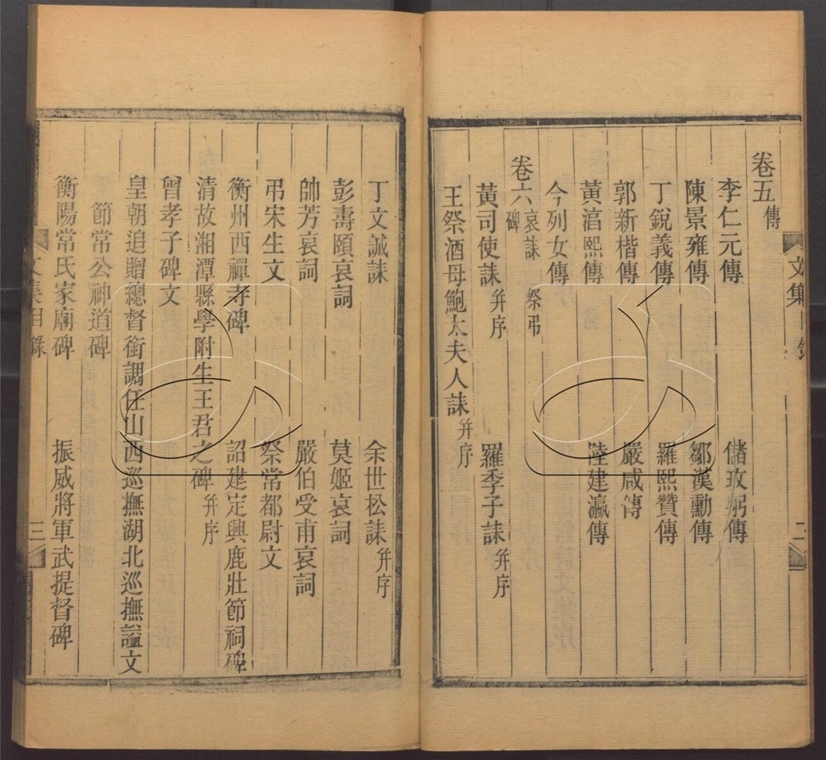 卷五傳
李仁元傳 儲玫躬傳
陳景雍傳 鄒漢勳傳
丁銳義傳 羅熙贊傳
郭新楷傳 嚴咸傳
黃淯熙傳 陸建瀛傳
今列女傳
卷六哀誄 祭弔 碑
黃司使誄并序 羅季子誄并序
王祭酒母鮑太夫人誄并序
丁文誠誄 余世松誄并序
彭壽頤哀詞 莫姬哀詞
帥芳哀詞 嚴伯受甫哀詞
弔宋生文 祭常都尉文
衡州西禪寺碑 詔建定興鹿壯節祠碑
清故湘潭縣學附生王君之碑并序
曾孝子碑文
皇朝追贈總督銜調任山西巡撫湖北巡撫諡文
節常公神道碑
衡陽常氏家廟碑 振威將軍武提督碑
文集目錄 三